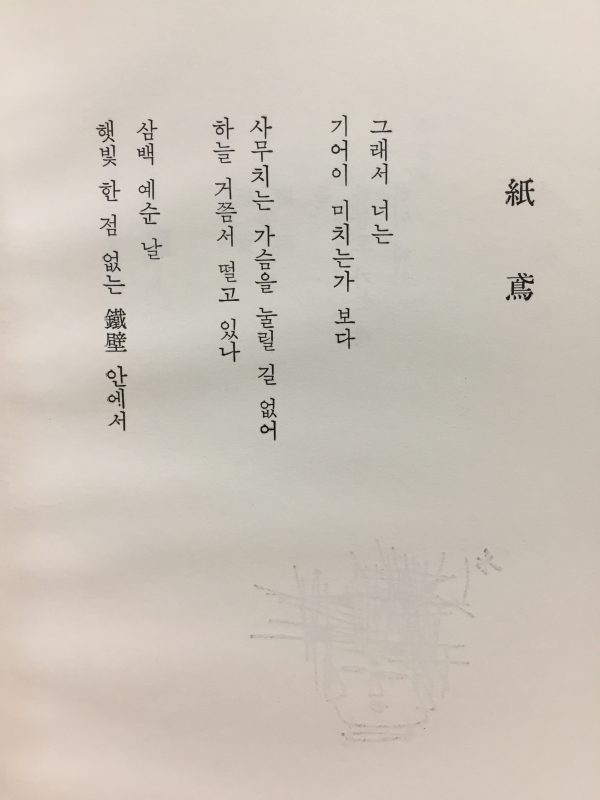 紙鳶
그래서 너는
기어이 미치는가 보다
사무치는 가슴을 눌릴 길 없어
하늘 거쯤서 떨고 있나
삼백 예순 날
햇빛 한 점 없는 鐵壁 안에서